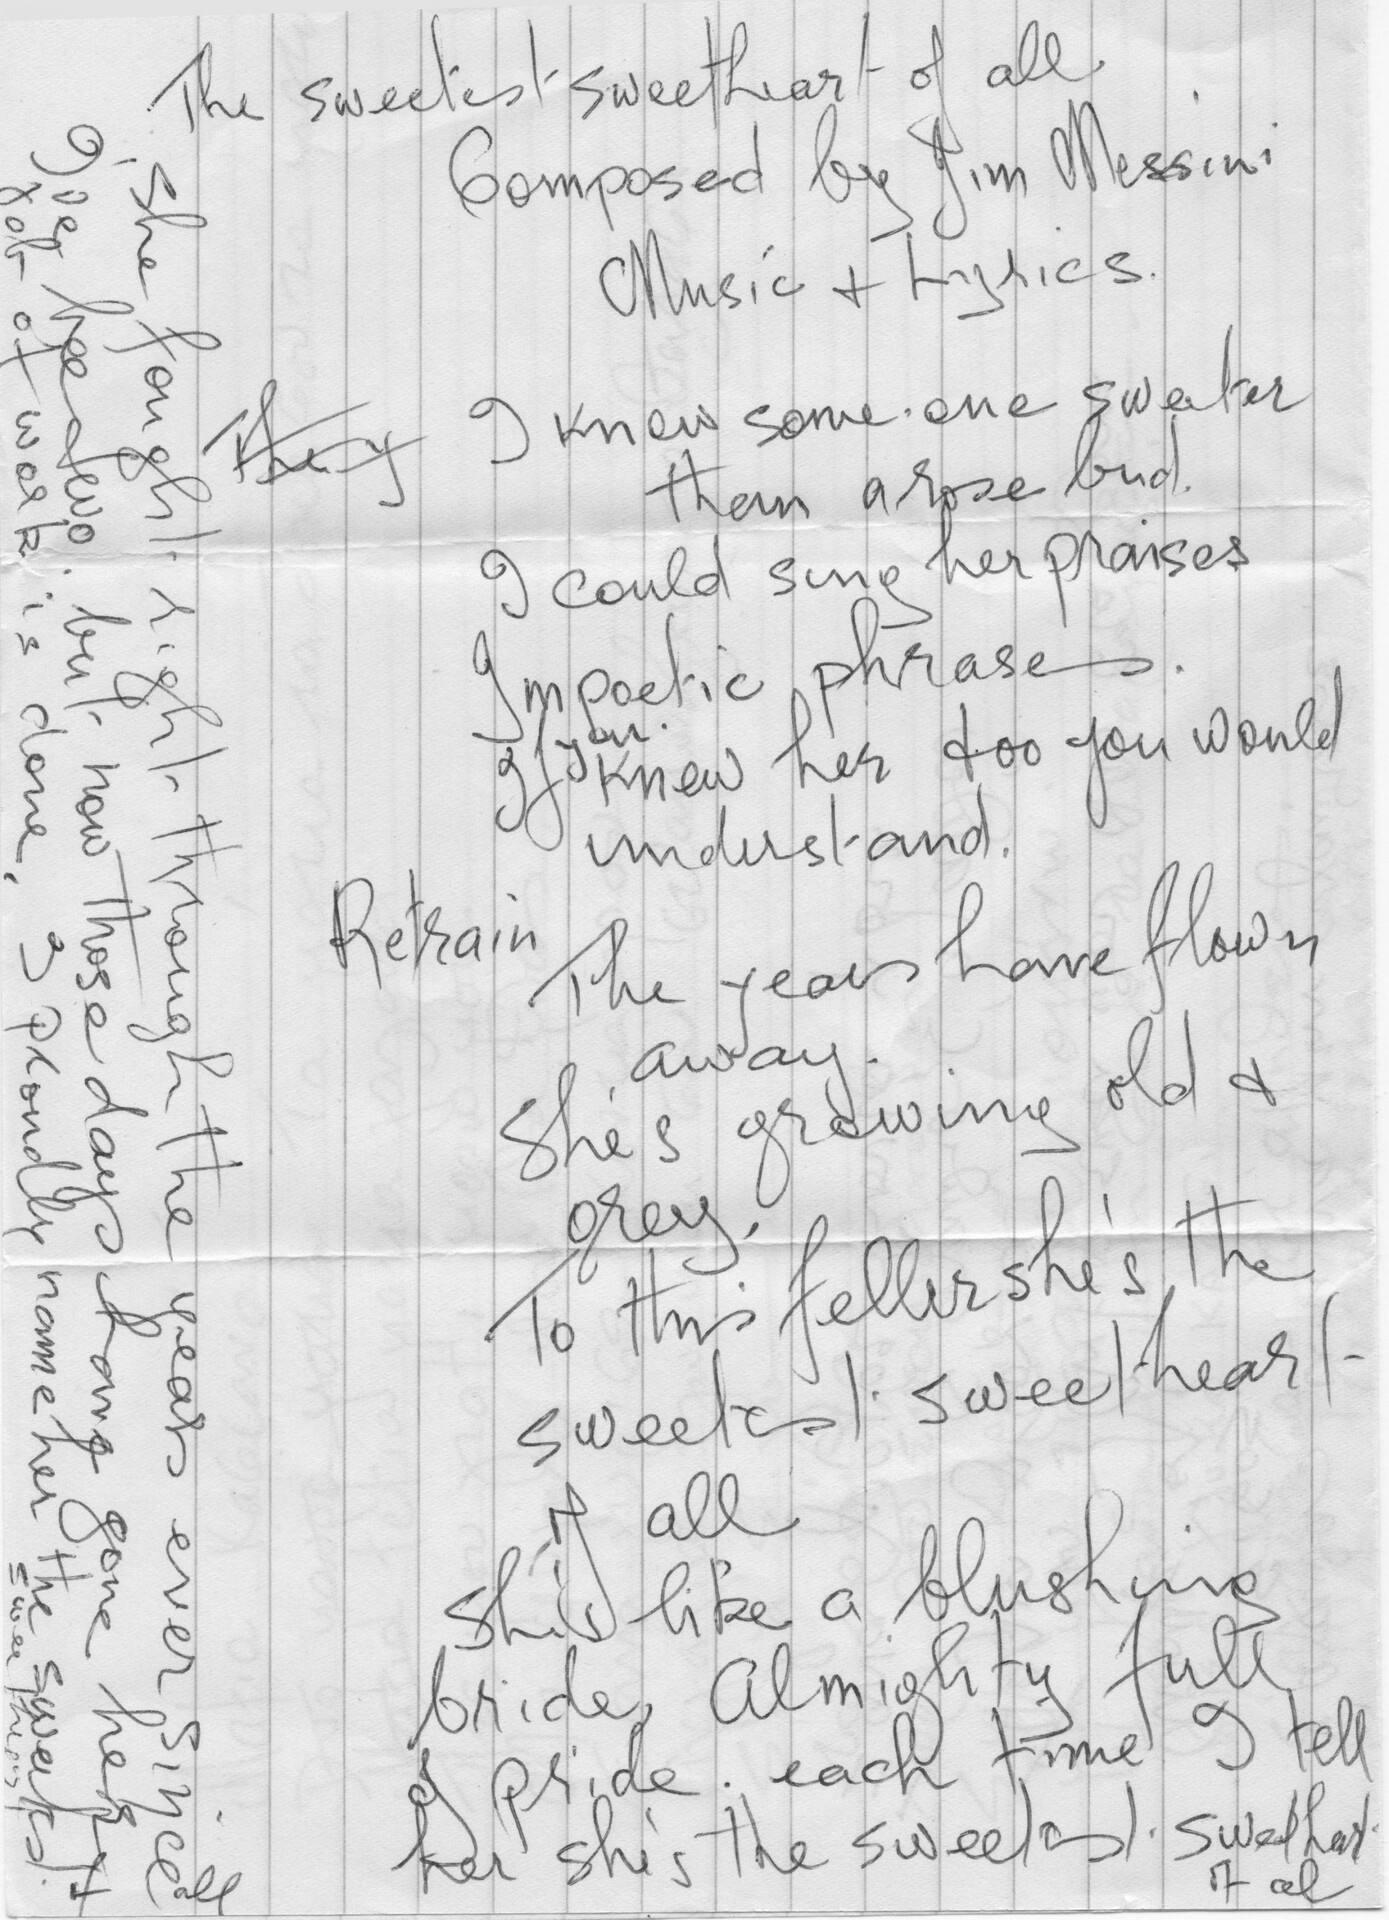 The sweetest sweetheart of all
Composed by Jim Messini
Music + Lyrics.
They I knew some one sweeter
than a rose bud.
I could sing her praises
In poetic phrases.
If you knew her too you would
understand.
Refrain
The years have flown
away.
She's growing old &
grey.
To this feller she's the
sweetest sweetheart
of all
She's like a blushing
bride, Almighty full
of pride. each time I tell
her she's the sweetest sweetheart
of al
She fought right through the years ever since
I've been two. but now those days have gone her
job of work is done, I proudly name her the sweetest
sweetheart
of
all